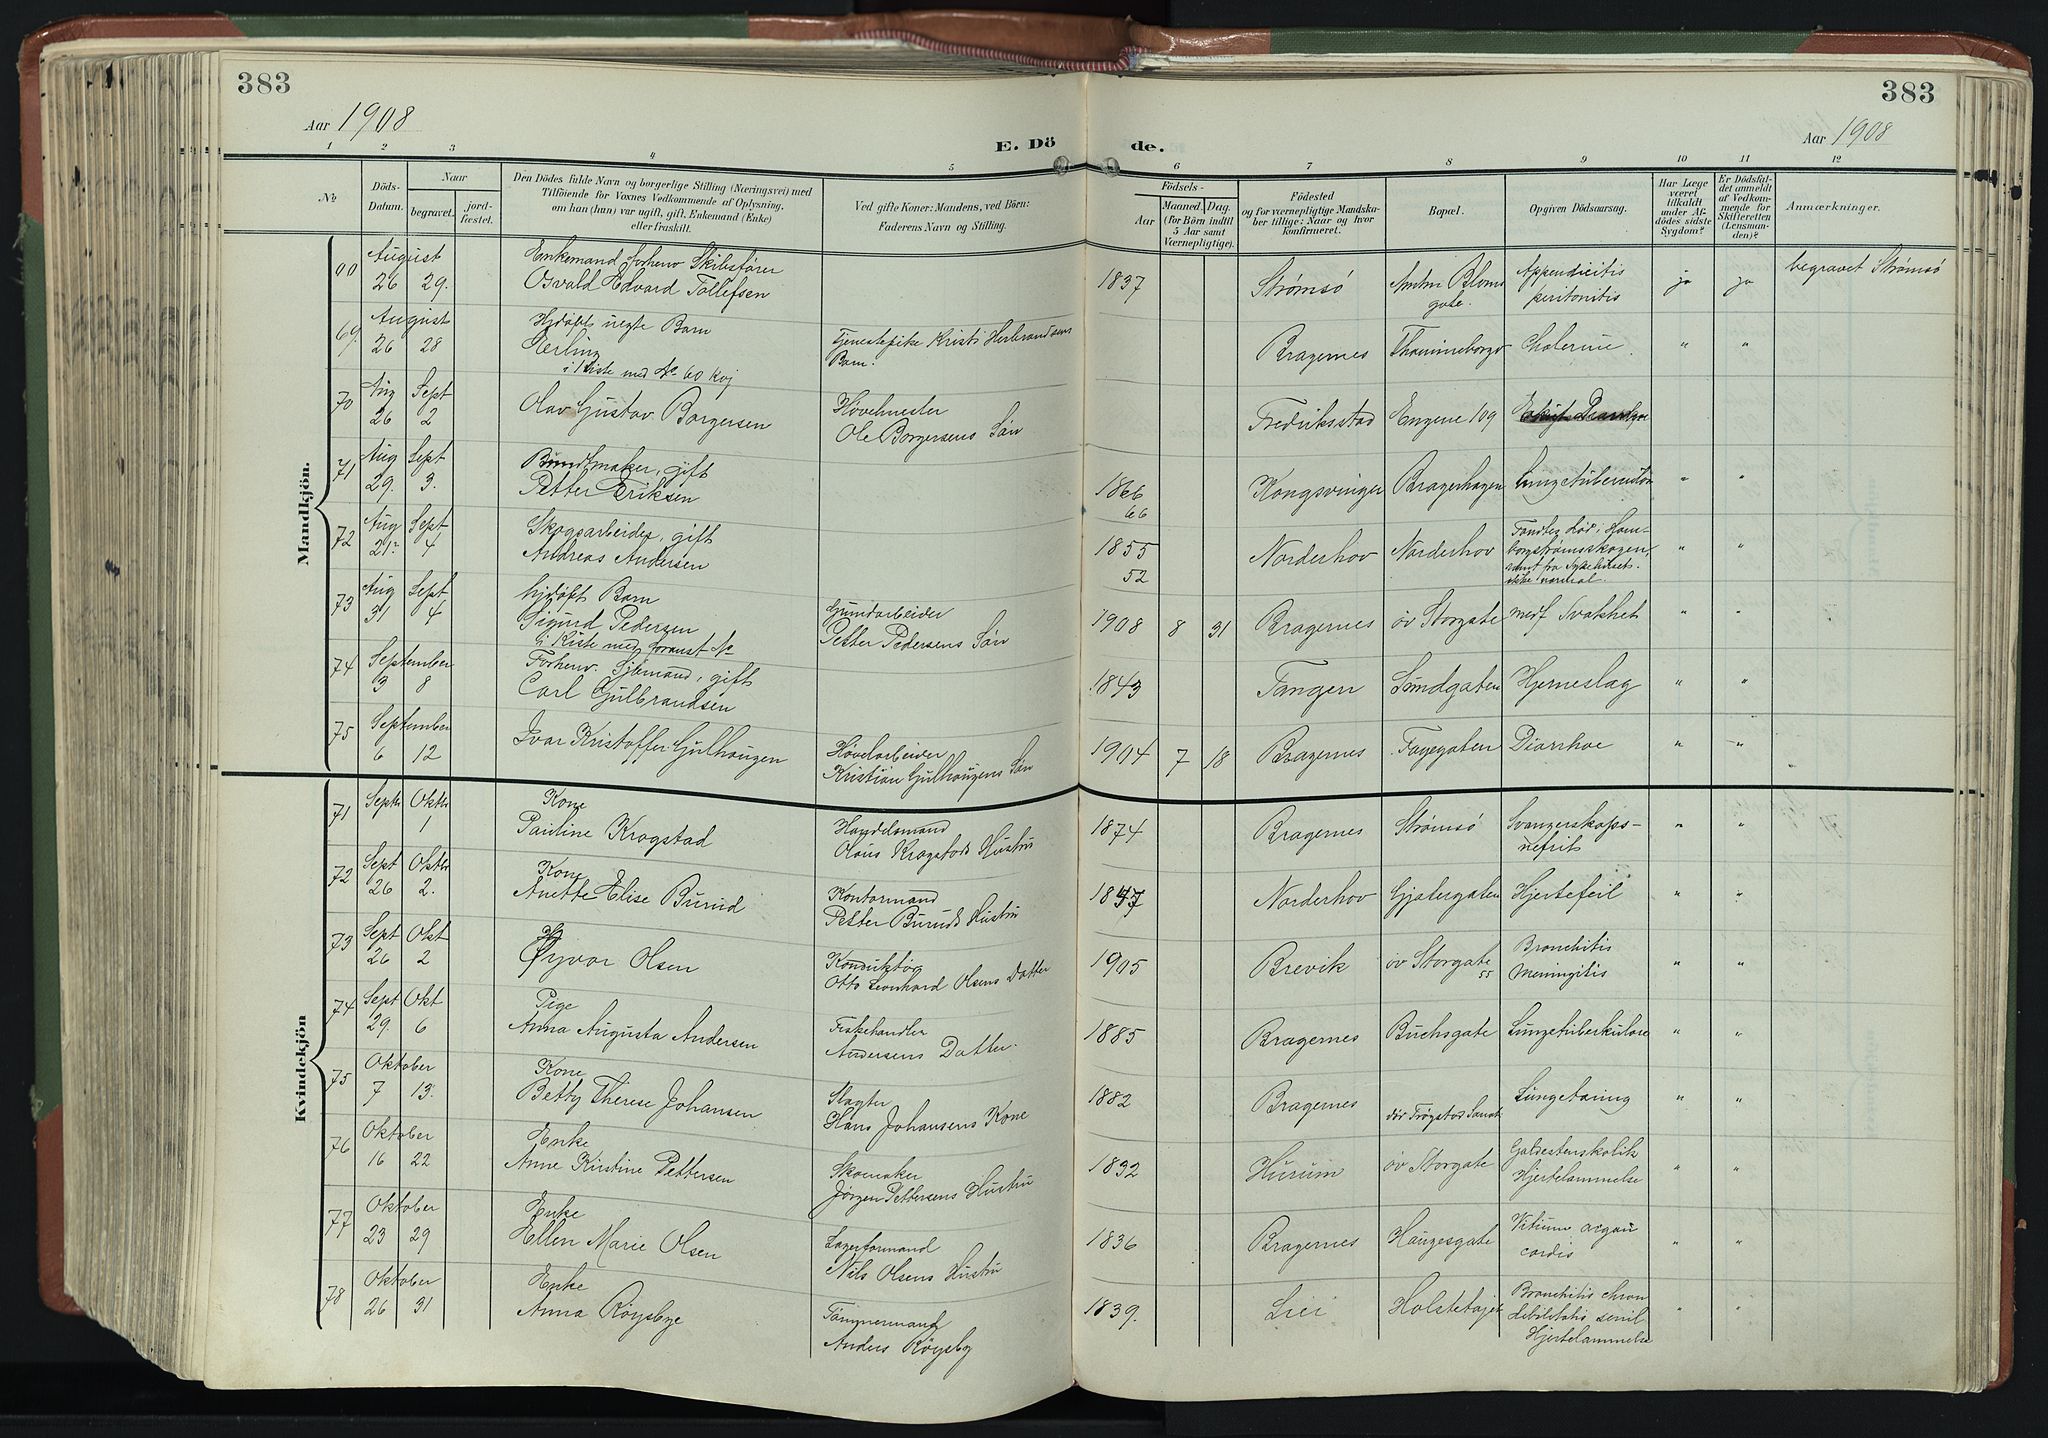 383
383
Aar 1908
E. Dö
de.
Aar 1908
1 2 3 4 5 6 7 8 9 10 11 12
№
Döds-
Datum.
Naar
begravet.
jord-
fæstet.
Den Dödes fulde Navn og borgerlige Stilling (Næringsvei) med
Tilföiende for Voxnes Vedkommende af Oplysning,
om han (hun) var ugift, gift, Enkemand (Enke)
eller fraskilt.
Ved gifte Koner: Mandens, ved Börn:
Faderens Navn og Stilling.
Födsels-
Aar
Maaned. Dag.
(for Börn indtil
5 Aar samt
Værnepligtige).
Födested
og for værnepligtige Mandska-
ber tillige: Naar og hvor
konfirmeret.
Bopæl.
Opgiven Dödsaarsag.
Har Læge
været
tilkaldt
under Af-
dödes sidste
Sygdom?
Er Dödsfal-
det anmeldt
af Vedkom-
mende for
Skifteretten
(Lensman-
den)?
Anmærkninger.
Mandkjön.
August
26 29.
Enkemand forhenv Skibsfører
Osvald Edvard Tollefsen
1837 Strømsø
Amtm Bloms
gate.
Appendicitis
peritonitis
ja ja begravet Strømsø
69.
August
26 28
Hjdøbt uegte Barn
Erling
i Kiste med No 60 Kvj
Tjenestepike Kristi Herbrandsens
Barn.
Bragernes
Cholerine " "
70
Aug Sept
26 2
Olav Gustav Borgersen
Høvelmester
Ole Borgersens Søn
Fredriksstad Engene 109
71
Aug Sept
29. 3.
Bundtmaker, gift
Petter Eriksen
1866
66
Kongsvinger Bragerhagen Lungetuberkulose " "
72
Aug Sept
21 4
Skogsarbeider, gift
Andreas Andersen
1855
52
Norderhov Norderhov
Fundlig død i Hom-
borgstrømsskogen
rømt fra Sykehuset.
ikke normal.
" "
73
Aug Sept
31 4
hjdøbt Barn
Sigurd Pedersen
i Kiste med foranst №
Grundarbeider
Petter Pedersens Søn
1908 8 31 Bragernes øv Storgate medf Svakhet " "
74
September
3 8
Forhenv. Sjømand, gift
Carl Gulbrandsen
1843 Tangen Sundgaten Hjerneslag " "
75
September
6 12
Ivar Kristoffer Gulhaugen
Høvlarbeider
Kristian Gulhaugens Søn
1904 7 18 Bragernes Fagegaten Diarrhoe " "
Kvindekjön
71
Septr Oktbr
1
Kone
Pauline Krogstad
Handelsmand
Olaus Krogstads Hustru
1874 Bragernes Strømsø
Svangerskaps-
nefrit
" "
72
Sept Oktbr
26 2.
Kone
Anette Elise Burud
Kontormand
Petter Buruds Hustru
1847 Norderhov Gjetergaten Hjertefeil " "
73
Sept Okt
26 2
Øyvor Olsen
Konduktør
Otto Leonhard Olsens Datter
1905 Brevik
øv Storgate
55
Bronchitis
Meningitis
" "
74
Sept Okt
29. 6
Pige
Anna Augusta Andersen
Fiskehandler
Andersens Datter.
1885 Bragernes Buchsgate Lungetuberkulose " "
75
Oktober
7 13.
Kone
Betty Therese Johansen
Slagter
Hans Johansens Kone
1882 Bragernes
Lungetæring " "
76
Oktober
16 22
Enke
Anne Kirstine Pettersen
Skomaker
Jørgen Pettersens Hustru
1832 Hurum øv Storgate
Galdestenskolik
Hjertelammelse
" "
77
Oktober
23 29
Enke
Ellen Marie Olsen
Lagerformand
Nils Olsens Hustru
1836 Bragernes Haugesgate
Vitium organ
cordis
" "
78
Oktober
26 31
Enke
Anna Røysbye
Tømmermand
Anders Røysby
1839. Lier
Bronchitis chron
debilitatis senil
Hjertelammelse
" "